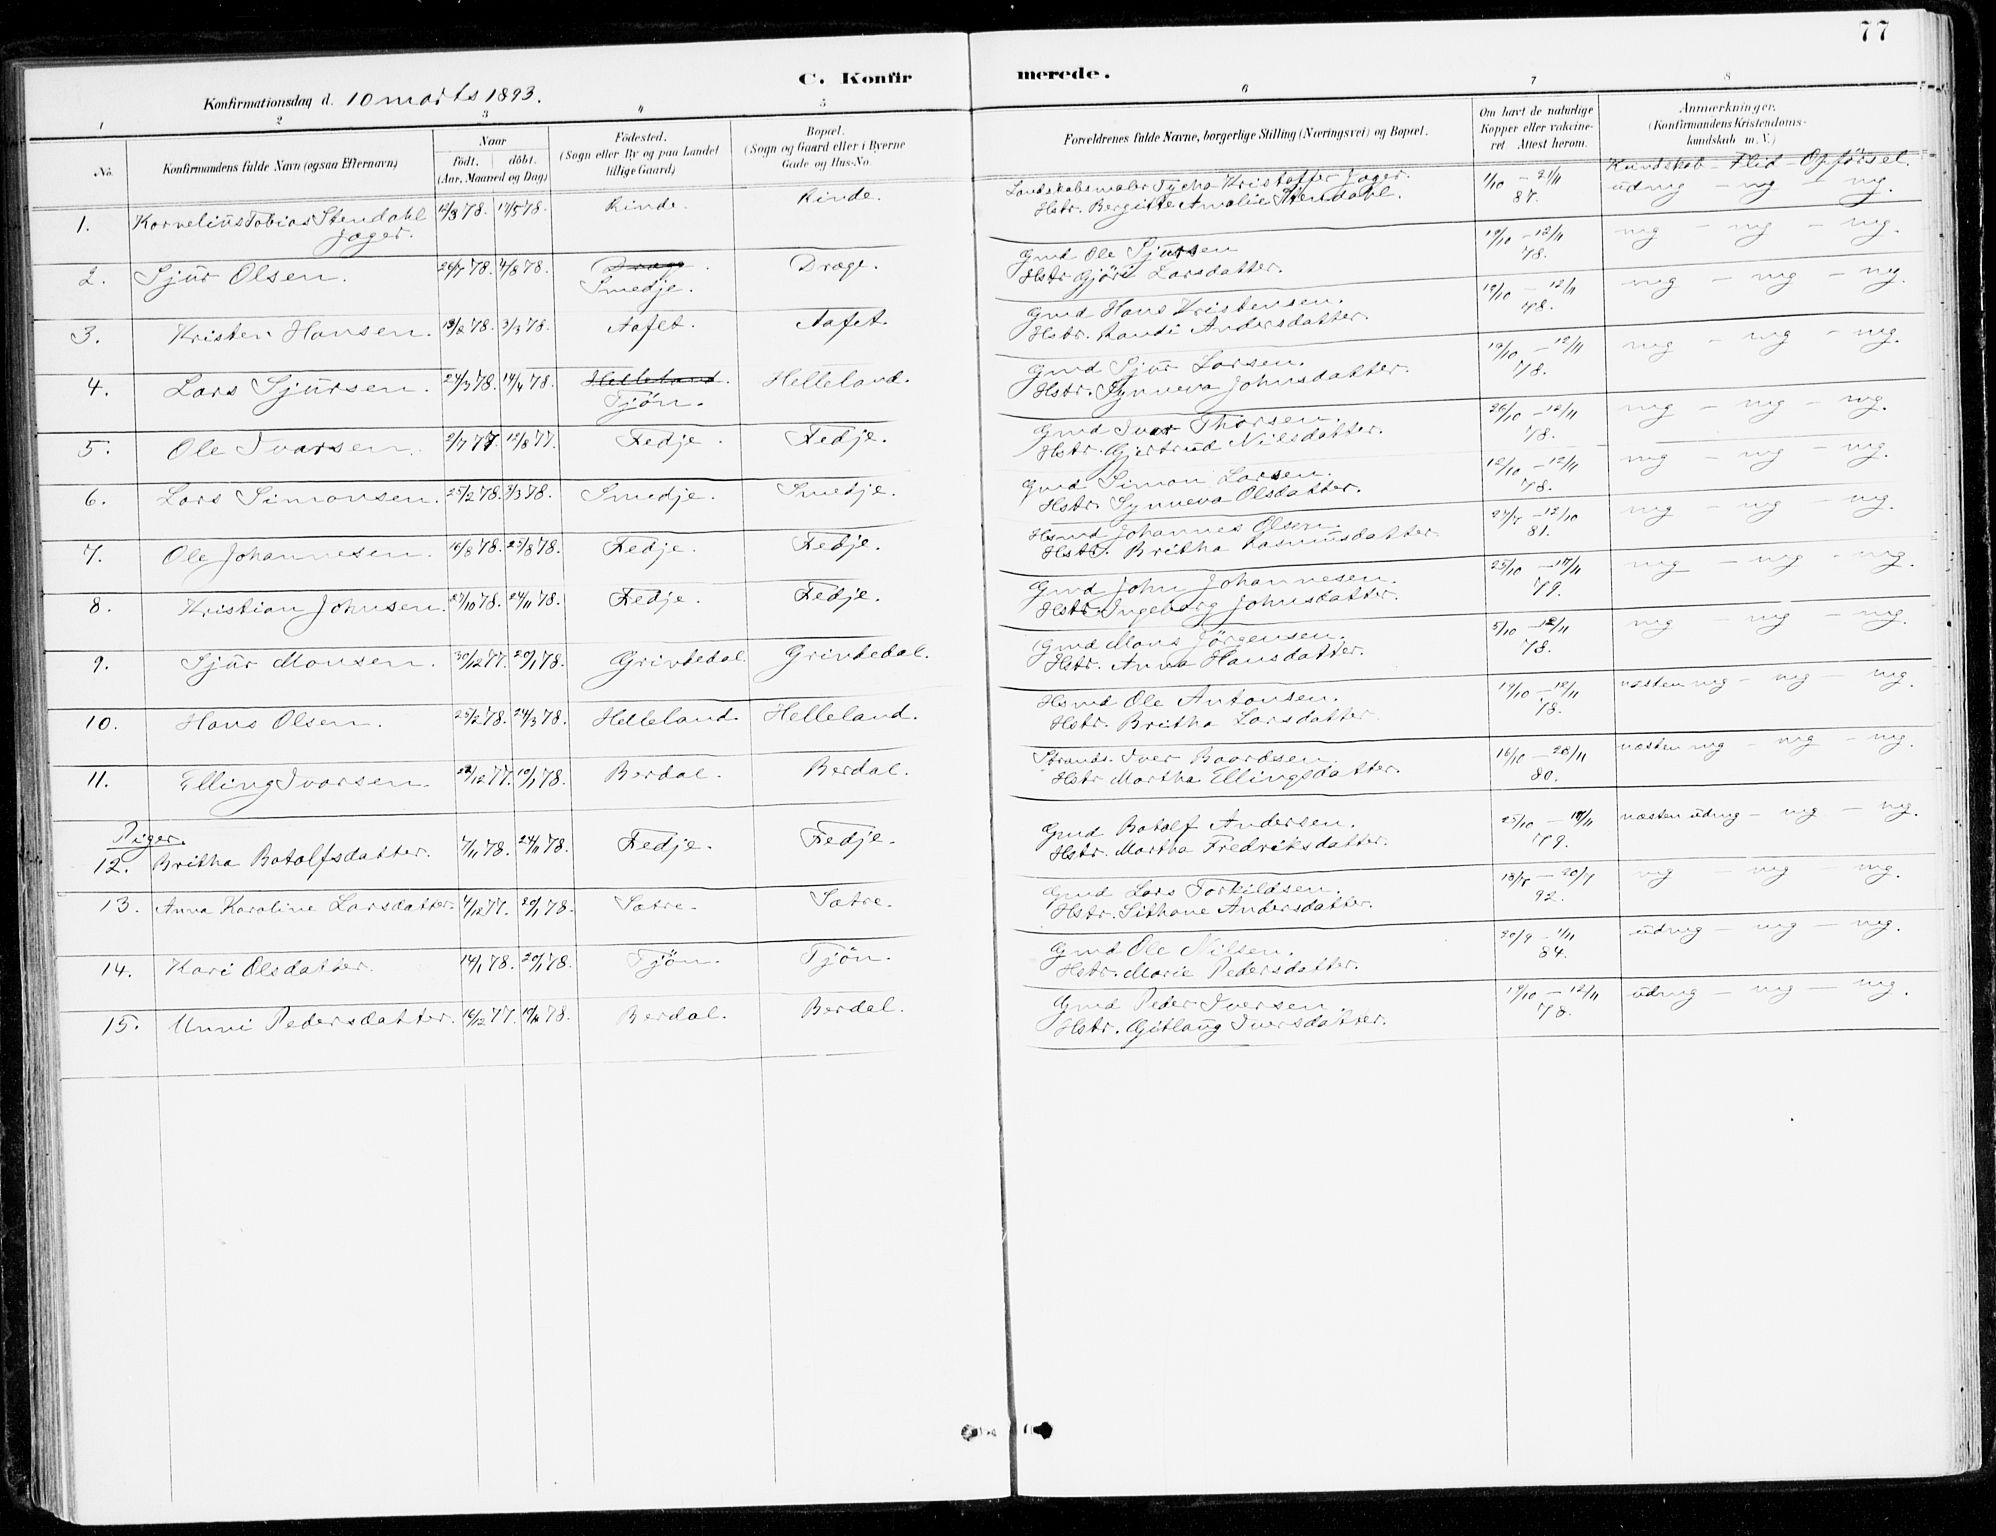 77
C. Konfir merede.
Konfirmationsdag d. 10 marts 1893.
1 2 3 4 5 6 7 8
No. Konfirmandens fulde Navn (ogsaa Efternavn) Naar født. døbt. (Aar, Maaned og Dag) Fødested. (Sogn eller By og paa Landet tillige Gaard) Bopæl. (Sogn og Gaard eller i Byerne Gade og Hus-No. Forældrenes fulde Navne, borgerlige Stilling (Næringsvei) og Bopæl. Om havt de naturlige Kopper eller vakcineret. Attest herom. Anmærkninger. (Konfirmandens Kristendomskundskab m. V.)
Kundskab - Flid - Opførsel.
1. Kornelius Tobias Stendahl Jæger. 12/3 78. 17/5 78. Rinde. Rinde. Landskabsmaler Tycho Kristoffer Jæger. Hstr. Bergitte Amalie Stendahl. 1/10 - 21/11 87. udmg - mg - mg.
2. Sjur Olsen. 26/7 78. 4/8 78. Dræge. Smedje. Dræge. Gmd Ole Sjursen Hstr Gjøri Larsdatter. 19/10 - 12/11 78. mg - mg - mg.
3. Kristen Hansen. 13/2 78. 3/3 78. Aafet. Aafet. Gmd Hans Kristensen. Hstr. Randi Andersdatter. 19/10 - 12/11 78. mg - mg - mg.
4. Lars Sjursen. 27/3 78. 14/4 78. Helleland. Tjøn. Helleland. Gmd Sjur Larsen. Hstr. Synneva Johnsdatter. 19/10 - 12/11 78. mg - mg - mg.
5. Ole Ivarsen. 2/7 77. 12/8 77. Fedje. Fedje. Gmd Ivar Thorsen. Hstr. Gjertrud Nilsdatter. 26/10 - 12/11 78. mg - mg - mg.
6. Lars Simonsen. 25/2 78. 3/3 78. Smedje. Smedje. Gmd Simon Larsen. Hstr. Synneva Olsdatter. 12/10 - 12/11 78. mg - mg - mg.
7. Ole Johannesen. 16/8 78. 25/8 78. Fedje. Fedje. Hsmd Johannes Olsen. Hstr. Britha Rasmusdatter. 27/8 - 12/10 81. mg - mg - mg.
8. Kristian Johnsen. 27/10 78. 24/11 78. Fedje. Fedje. Gmd John Johannesen. Hstr. Ingeborg Johnsdatter. 25/10 - 17/11 79. mg - mg - mg.
9. Sjur Monsen. 30/12 77. 20/1 78. Grindedal. Grindedal. Gmd Mons Jørgensen. Hstr. Anna Hansdatter. 5/10 - 12/11 78. mg - mg - mg.
10. Hans Olsen. 25/2 78. 24/3 78. Helleland. Helleland. Hsmd Ole Antonsen. Hstr. Britha Larsdatter 19/10 - 12/11 78. næsten mg - mg - mg.
11. Elling Ivarsen. 22/12 77. 19/1 78. Berdal. Berdal. Strands. Iver Baardsen. Hstr Martha Ellingsdatter. 16/10 - 28/11 80. næsten mg - mg - mg.
Piger.
12. Britha Botolfsdatter. 7/11 78. 24/11 78. Fedje. Fedje. Gmd Botolf Andersen. Hstr. Martha Fredriksdatter. 25/10 - 17/11 79. næsten udmg - mg - mg.
13. Anna Karoline Larsdatter. 4/12 77. 20/1 78. Sætre. Sætre. Gmd Lars Torkildsen. Hstr. Sithane Andersdatter. 92. mg - mg - mg.
14. Kari Olsdatter. 14/1 78. 20/1 78. Tjøn. Tjøn. Gmd Ole Nilsen. Hstr. Marie Pedersdatter. 20/9 - 1/11 84. udmg - mg - mg.
15. Unni Pedersdatter. 16/12 77. 78. Berdal. Berdal. Gmd Peder Iversen Hstr. Gitlaug Iversdatter. 19/10 - 12/11 78. udmg - mg - mg.